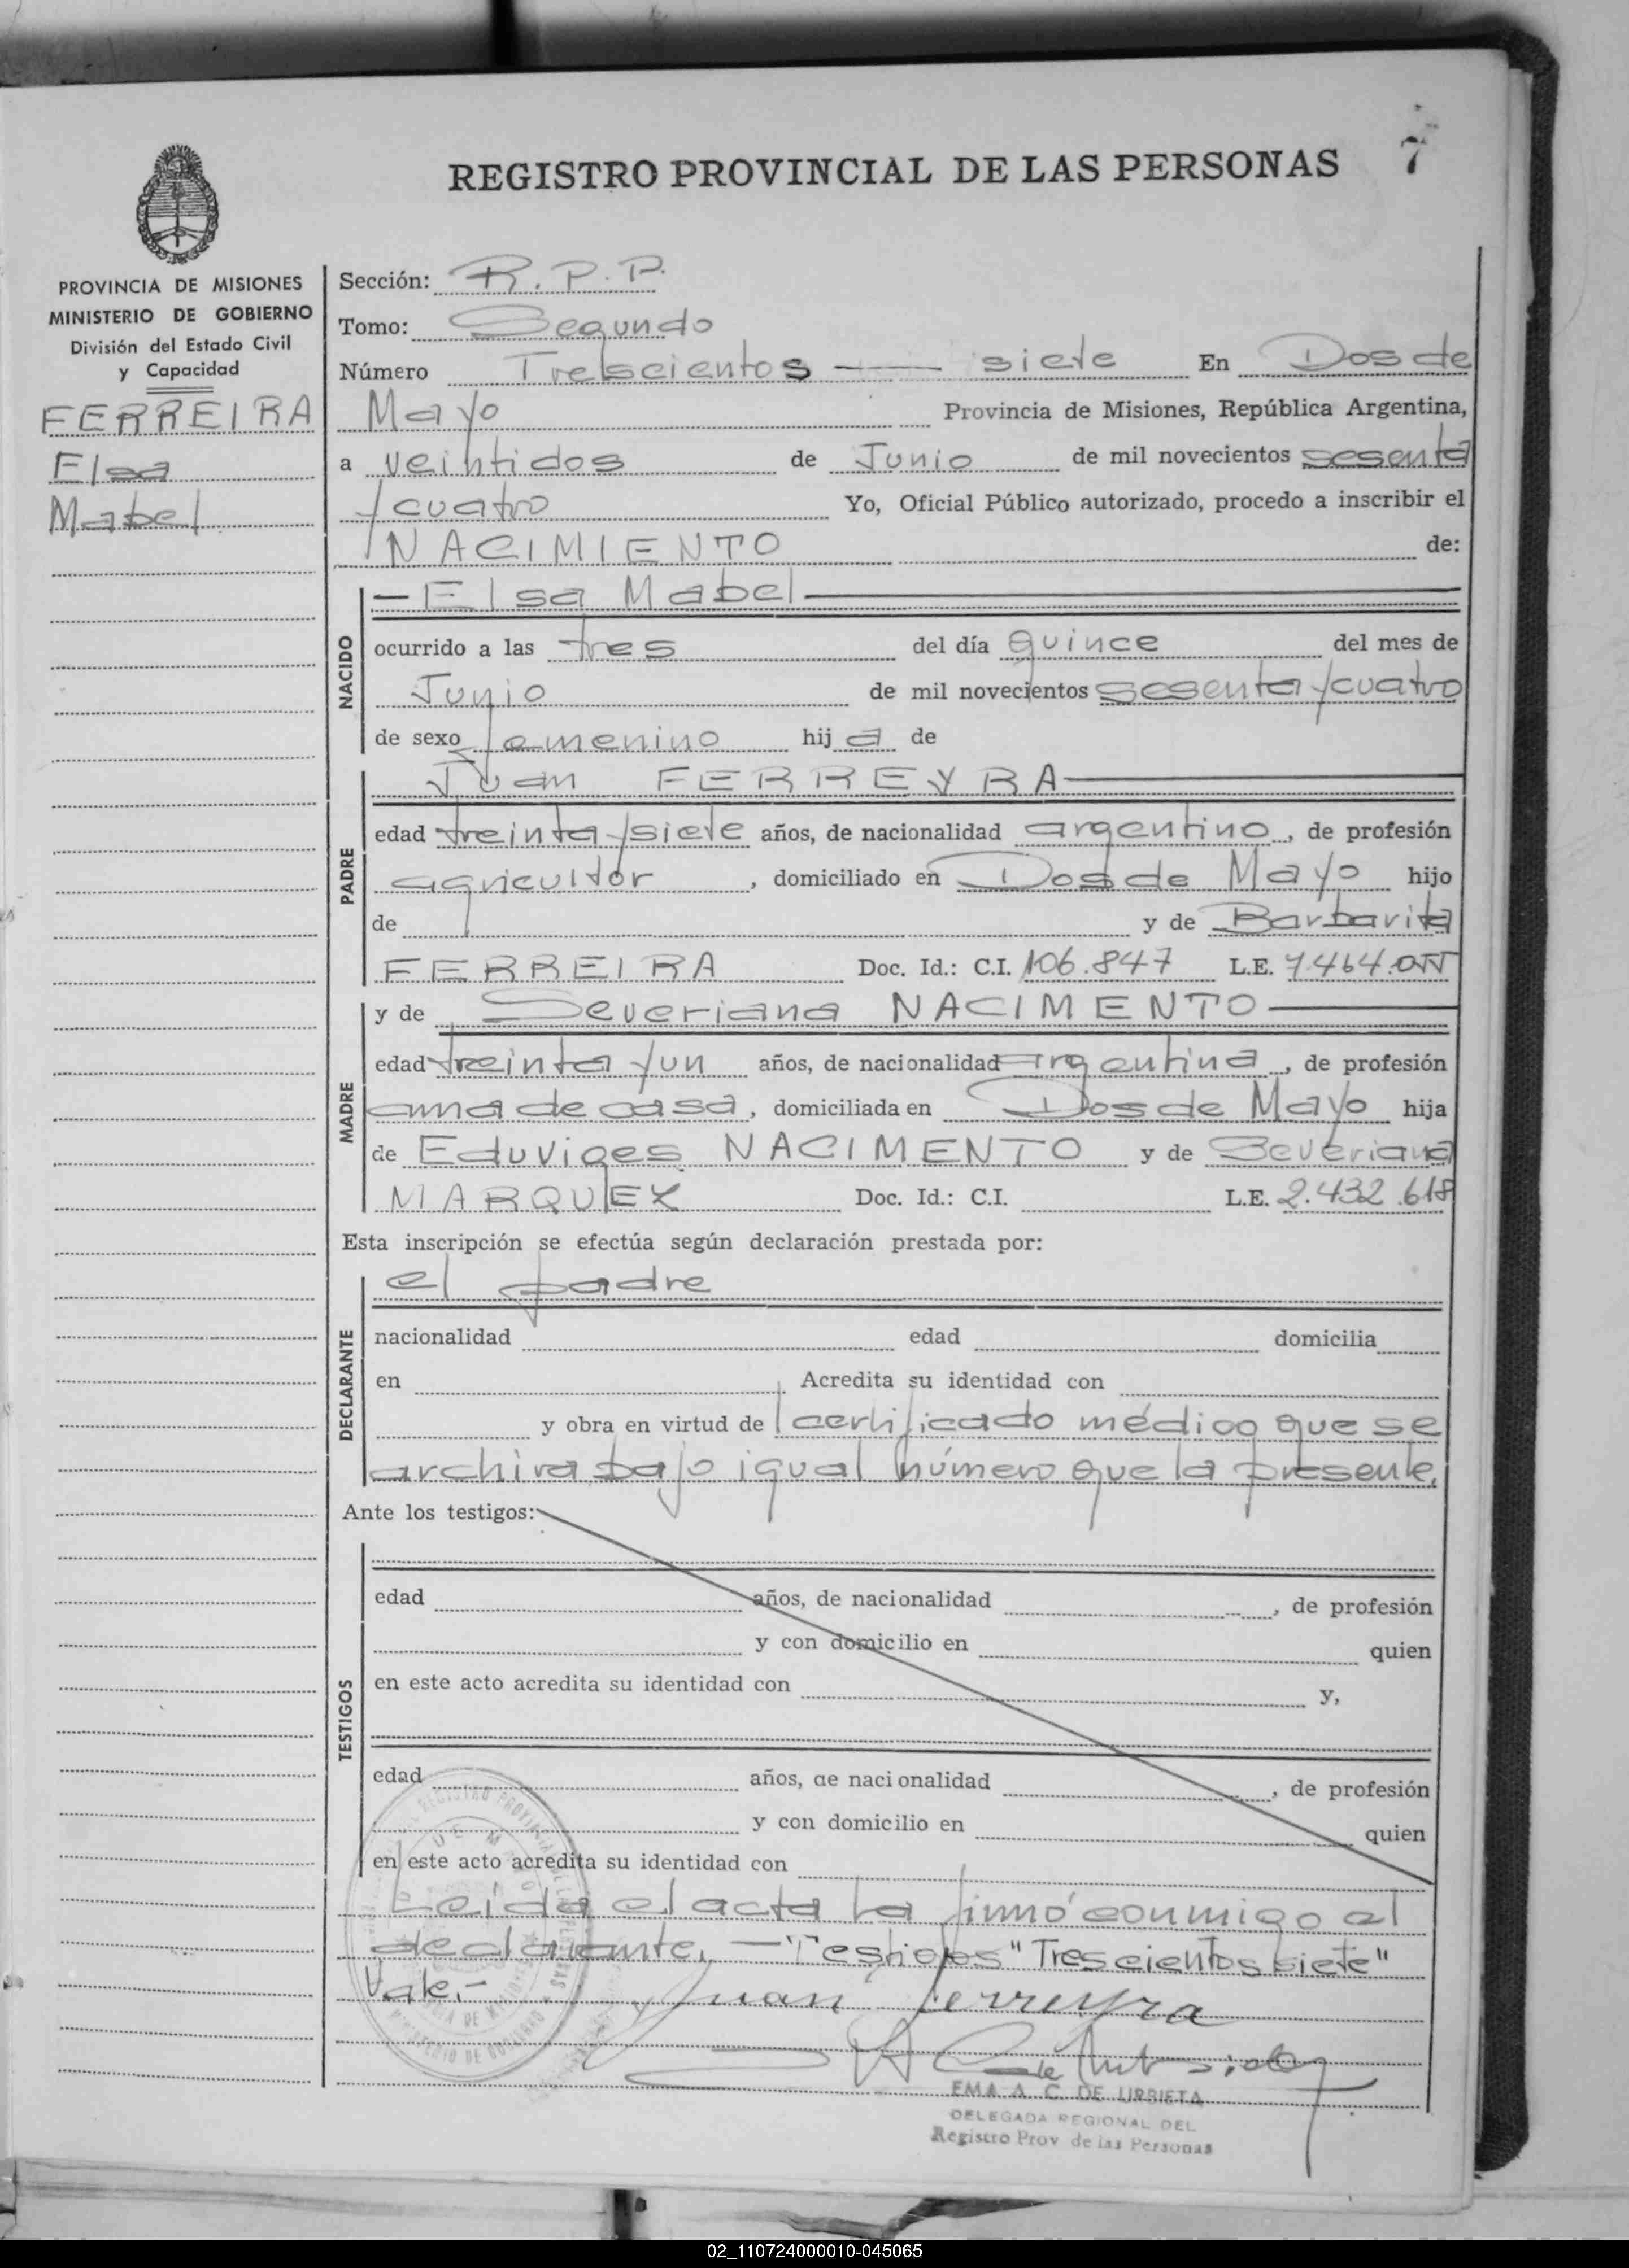 7
REGISTRO PROVINCIAL DE LAS PERSONAS
PROVINCIA DE MISIONES
MINISTERIO DE GOBIERNO
División del Estado Civil
y Capacidad
FERREIRA
Elsa
Mabel
Sección: R. P. P.
Tomo: Segundo
Número Trescientos — siete En Dos de
Mayo Provincia de Misiones, República Argentina,
a veintidos de Junio de mil novecientos sesenta
y cuatro Yo, Oficial Público autorizado, procedo a inscribir el
NACIMIENTO de:
NACIDO
— Elsa Mabel —
ocurrido a las tres del día quince del mes de
Junio de mil novecientos sesenta y cuatro
de sexo femenino hij a de
PADRE
Juan FERREYRA —
edad treinta y siete años, de nacionalidad argentino, de profesión
agricultor, domiciliado en Dos de Mayo hijo
de y de Barbarita
FERREIRA Doc. Id.: C.I. 106.847 L.E. 7.464.055
MADRE
y de Severiana NACIMENTO —
edad treinta y un años, de nacionalidad argentina, de profesión
ama de casa, domiciliada en Dos de Mayo hija
de Eduviges NACIMENTO y de Severiana
MARQUEZ Doc. Id.: C.I. L.E. 2.432.618
Esta inscripción se efectúa según declaración prestada por:
DECLARANTE
el padre
nacionalidad edad domicilia
en Acredita su identidad con
y obra en virtud de certificado médico que se
archiva bajo igual número que la presente.
Ante los testigos:
TESTIGOS
edad años, de nacionalidad , de profesión
y con domicilio en quien
en este acto acredita su identidad con y,
edad años, de nacionalidad , de profesión
y con domicilio en quien
en este acto acredita su identidad con
Leída el acta la firmó conmigo el
declarante. — "Trescientos siete"
Vale.-
Juan Ferreyra
EMA A. C. DE URRIETA
DELEGADA REGIONAL DEL
Registro Prov de las Personas
02_110724000010-045065